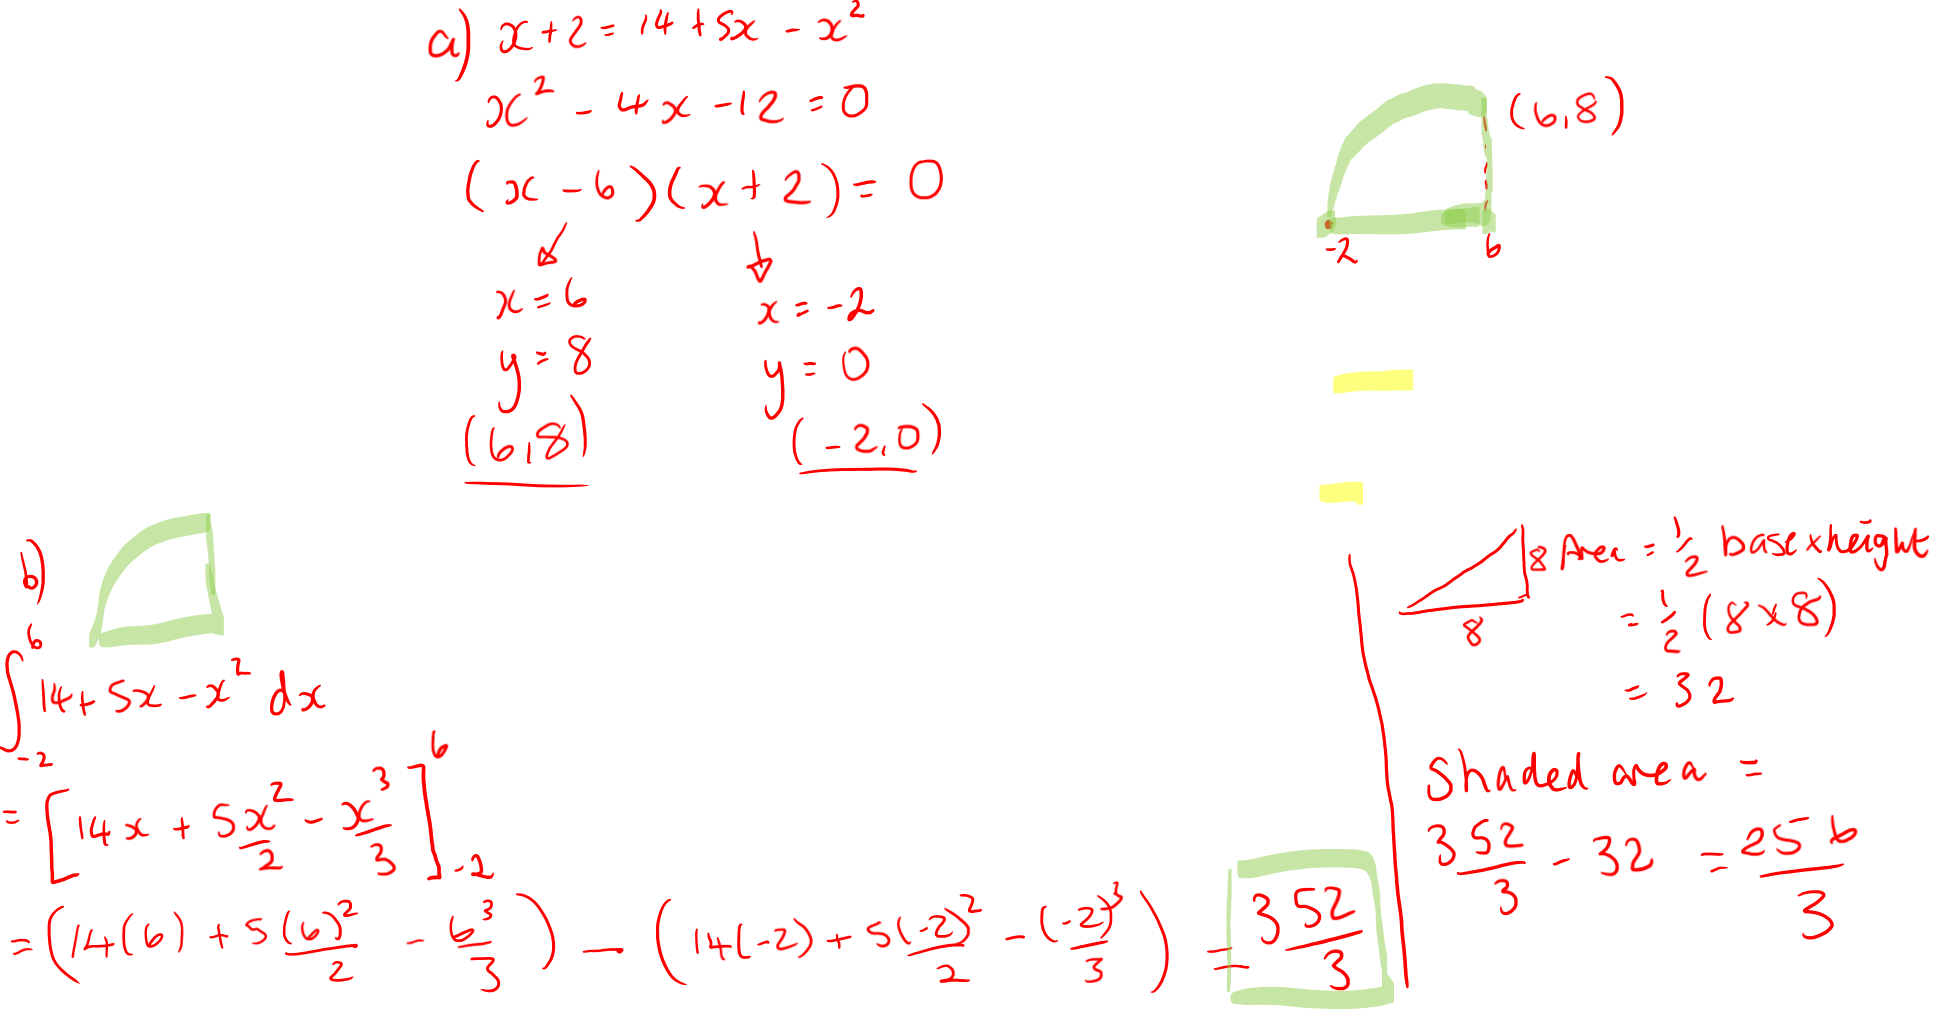 a) x + 2 = 14 + 5x - x²
x² - 4x - 12 = 0
(x - 6)(x + 2) = 0
x = 6
y = 8
(6,8)
x = -2
y = 0
(-2,0)
(6,8)
-2 6
b)
∫₋₂⁶ 14 + 5x - x² dx
= [14x + 5x²/2 - x³/3]₋₂⁶
= (14(6) + 5(6)²/2 - 6³/3) - (14(-2) + 5(-2)²/2 - (-2)³/3) = 352/3
8
8
Area = 1/2 base × height
= 1/2 (8 × 8)
= 32
Shaded area =
352/3 - 32 = 256/3